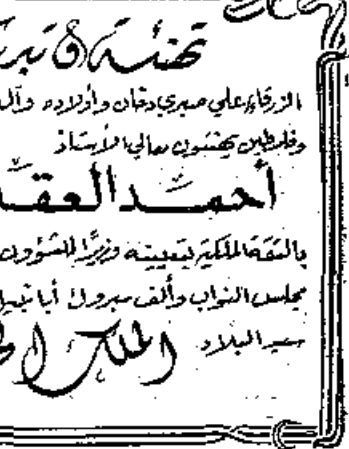 تهنئة و تبر
الزرقاء/علي صبري دخان وأولاده وآل
وفلسطين يهنئون معالي الأستاذ
أحمد العقـ
بالثقة الملكية بتعيينه وزيرًا للشؤون
مجلس النواب وألف مبروك أبا
سيد البلاد
الملك